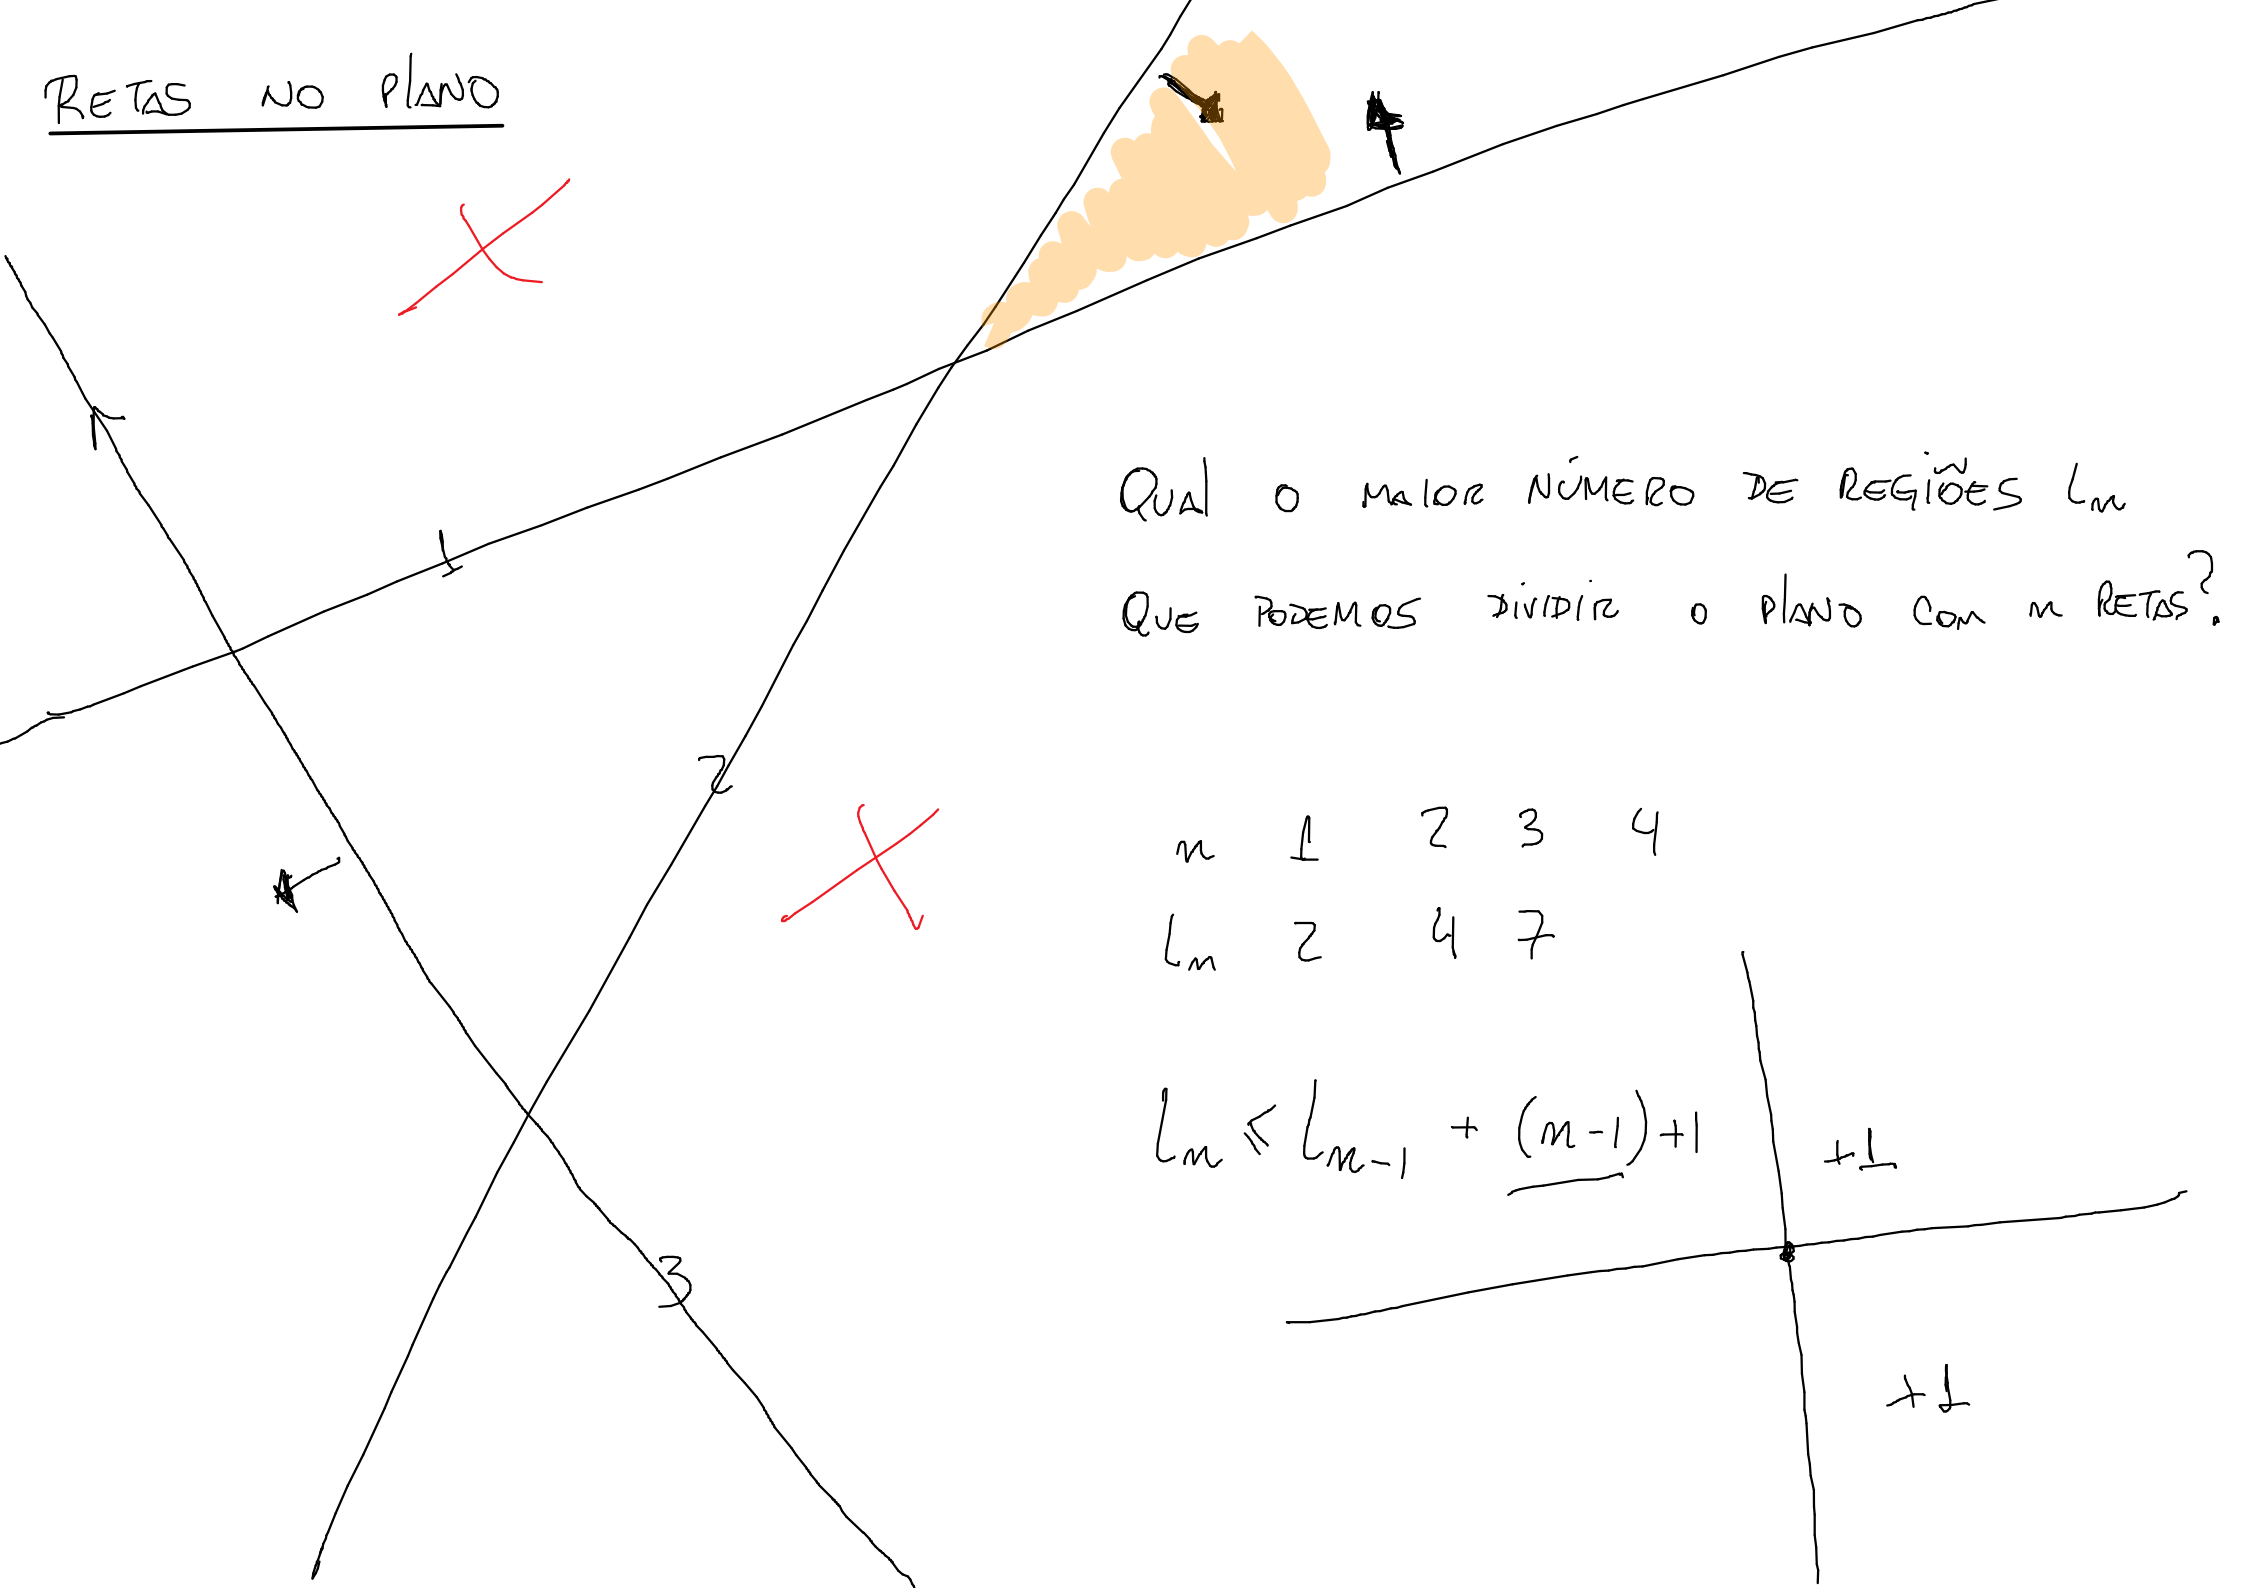 RETAS NO PLANO
1
QUAL O MAIOR NÚMERO DE REGIÕES Ln
QUE PODEMOS DIVIDIR O PLANO COM n RETAS?
2
n 1 2 3 4
Ln 2 4 7
Ln ≤ Ln-1 + (n-1)+1
+1
3
+1